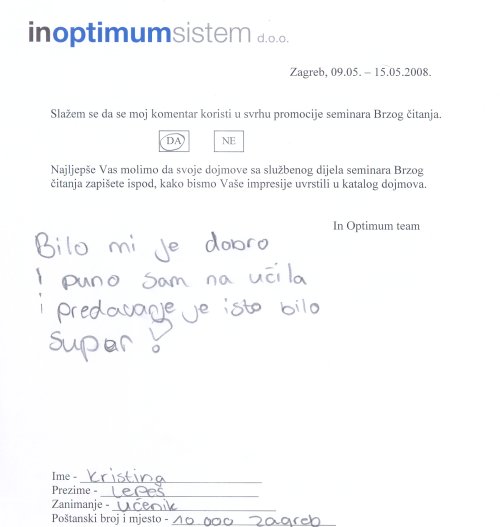 inoptimumsistem d.o.o.
Zagreb, 09.05. – 15.05.2008.
Slažem se da se moj komentar koristi u svrhu promocije seminara Brzog čitanja.
DA NE
Najljepše Vas molimo da svoje dojmove sa službenog dijela seminara Brzog
čitanja zapišete ispod, kako bismo Vaše impresije uvrstili u katalog dojmova.
In Optimum team
Bilo mi je dobro
i puno sam na učila
i predavanje je isto bilo
super!
Ime - Kristina
Prezime - Lepeš
Zanimanje - Učenik
Poštanski broj i mjesto - 10 000 Zagreb